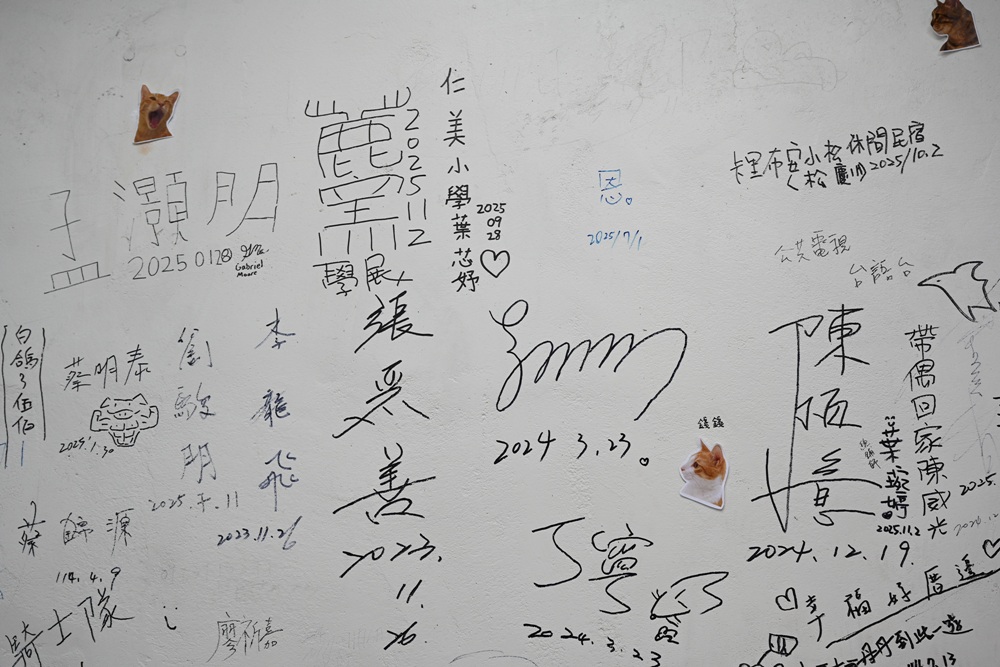 仁美小學葉芯妤
2025
09
28
2025
11
11112
學展
卡里布安小松休閒民宿
2025/10.2
恩。
2025/7/1
孟灝明
20250128
Gabriel
Moore
公共電視
台語台
白鴿
伍佰
蔡明泰
2025.1.30
劉駿明
李龍飛
2023.11.26
張
善
2023.
11.
26
2024 3.23。
錢錢
陳
2024.12.19.
葉璇婷
2025.11.2
帶偶回家陳威光
2025.
蔡錦源
114.4.9
騎士隊
廖祈嘉
丁寧
2024.3.23
幸福好厝邊
到此一遊